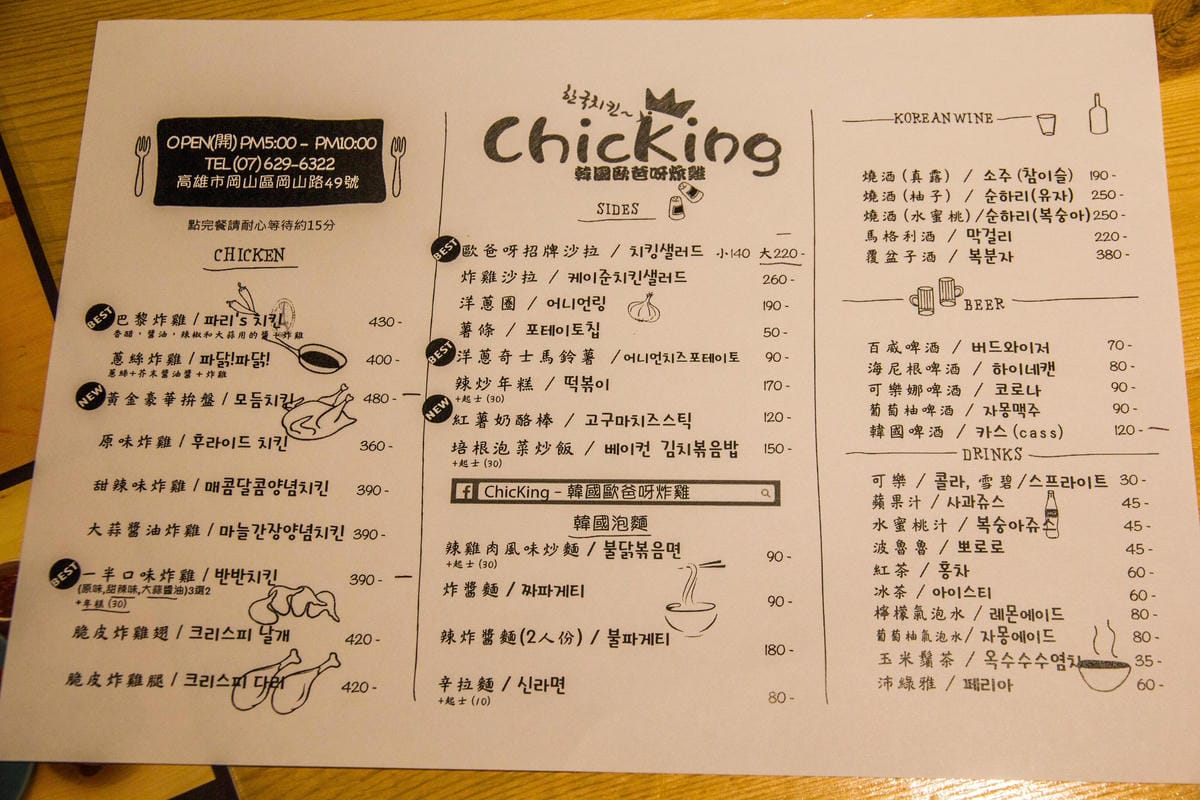 OPEN(開)PM5:00 - PM10:00
TEL(07)629-6322
高雄市岡山區岡山路49號
點完餐請耐心等待約15分
CHICKEN
BEST 巴黎炸雞 / 파리's 치킨 430-
香醋,醬油,辣椒和大蒜用的醬+炸雞
蔥絲炸雞 / 파닭!파닭! 400-
蔥絲+芥末醬油醬+炸雞
NEW 黃金豪華拚盤 / 모둠치킨 480-
原味炸雞 / 후라이드 치킨 360-
甜辣味炸雞 / 매콤달콤양념치킨 390-
大蒜醬油炸雞 / 마늘간장양념치킨 390-
BEST 一半口味炸雞 / 반반치킨 390-
(原味,甜辣味,大蒜醬油)3選2
+年糕(30)
脆皮炸雞翅 / 크리스피 날개 420-
脆皮炸雞腿 / 크리스피 다리 420-
한국치킨~
ChicKing
韓國歐爸呀炸雞
SIDES
BEST 歐爸呀招牌沙拉 / 치킹샐러드 小140 大220-
炸雞沙拉 / 케이준치킨샐러드 260-
洋蔥圈 / 어니언링 190-
薯條 / 포테이토칩 50-
BEST 洋蔥奇士馬鈴薯 / 어니언치즈포테이토 90-
辣炒年糕 / 떡볶이 170-
+起士(30)
NEW 紅薯奶酪棒 / 고구마치즈스틱 120-
培根泡菜炒飯 / 베이컨 김치볶음밥 150-
+起士(30)
f ChicKing - 韓國歐爸呀炸雞
韓國泡麵
辣雞肉風味炒麵 / 불닭볶음면 90-
+起士(30)
炸醬麵 / 짜파게티 90-
辣炸醬麵(2人份) / 불파게티 180-
辛拉麵 / 신라면 80-
+起士(10)
KOREAN WINE
燒酒(真露) / 소주(참이슬) 190-
燒酒(柚子) / 순하리(유자) 250-
燒酒(水蜜桃)/순하리(복숭아) 250-
馬格利酒 / 막걸리 220-
覆盆子酒 / 복분자 380-
BEER
百威啤酒 / 버드와이저 70-
海尼根啤酒 / 하이네캔 80-
可樂娜啤酒 / 코로나 90-
葡萄柚啤酒 / 자몽맥주 90-
韓國啤酒 / 카스(cass) 120-
DRINKS
可樂 / 콜라, 雪碧/스프라이트 30-
蘋果汁 / 사과쥬스 45-
水蜜桃汁 / 복숭아쥬스 45-
波魯魯 / 뽀로로 45-
紅茶 / 홍차 60-
冰茶 / 아이스티 60-
檸檬氣泡水 / 레몬에이드 80-
葡萄柚氣泡水/ 자몽에이드 80-
玉米鬚茶 / 옥수수수염차 35-
沛綠雅 / 페리아 60-